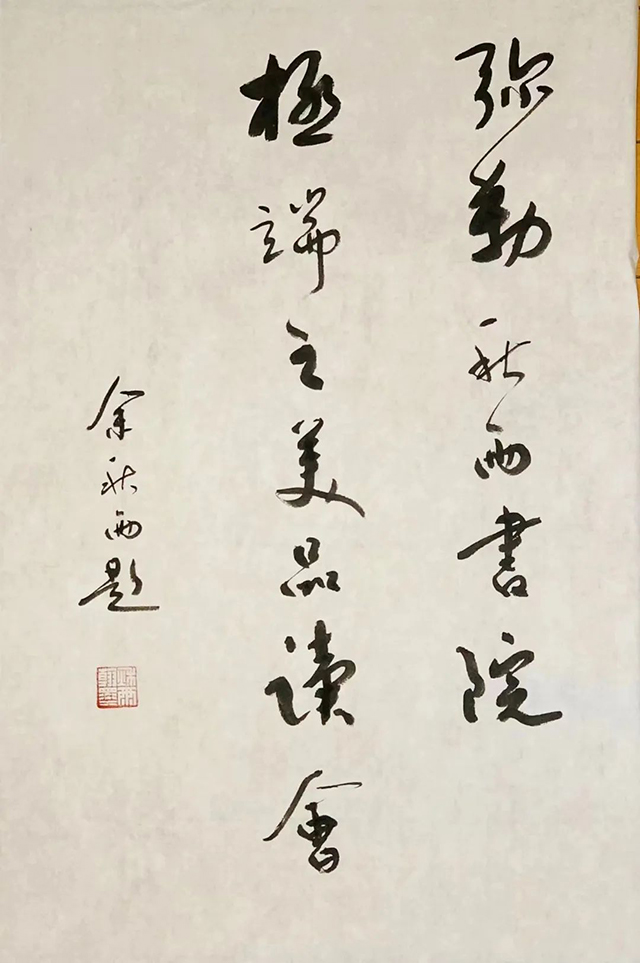 弥勒秋雨書院
極端之美品读會
余秋雨題